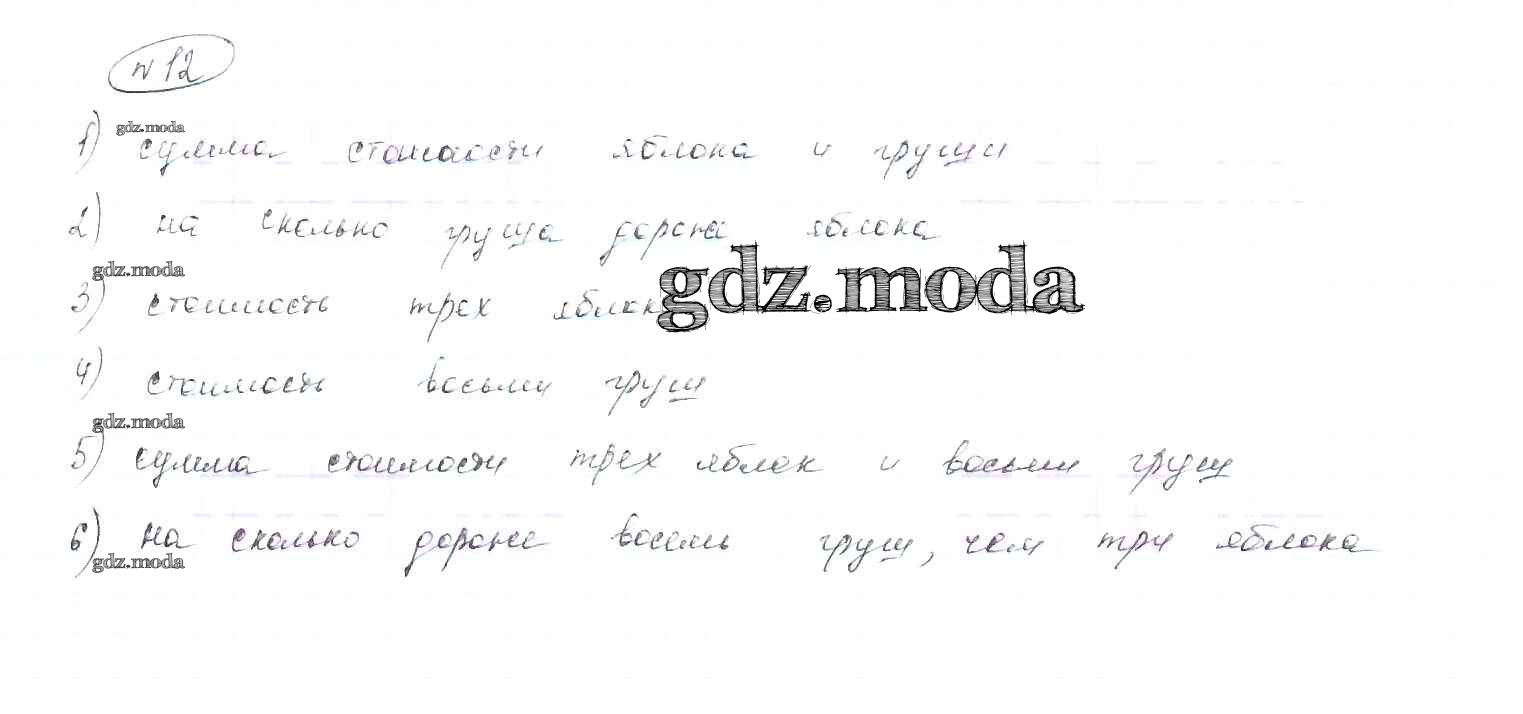 № 12
gdz.moda
1) сумма стоимости яблока и груши
2) на сколько груша дороже яблока
gdz.moda
gdz.moda
3) стоимость трех яблок
4) стоимость восьми груш
gdz.moda
5) сумма стоимости трех яблок и восьми груш
6) на сколько дороже восемь груш, чем три яблока
gdz.moda